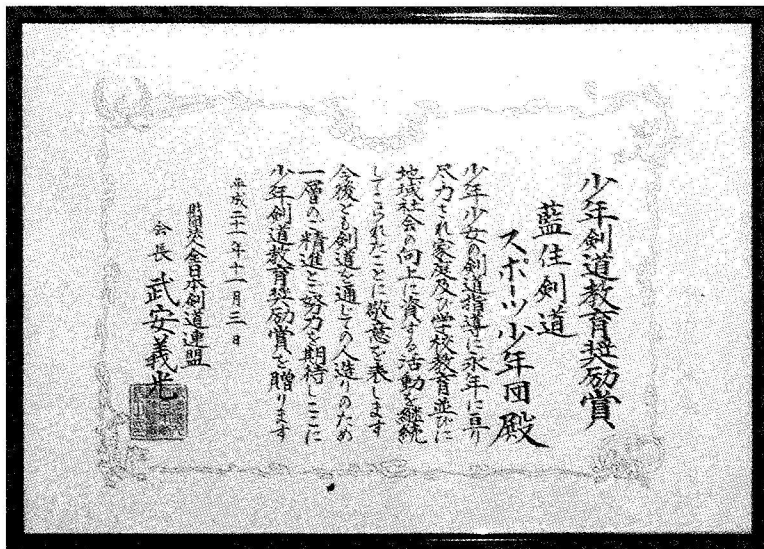 少年剣道教育奨励賞
藍住剣道
スポーツ少年団殿
少年少女の剣道指導に永年に亘り
尽力され家庭及び学校教育並びに
地域社会の向上に資する活動を継続
してこられたことに敬意を表します
今後とも剣道を通じての人造りのため
一層のご精進とご努力を期待しここに
少年剣道教育奨励賞を贈ります
平成二十一年十一月三日
財団法人全日本剣道連盟
会長 武安義光